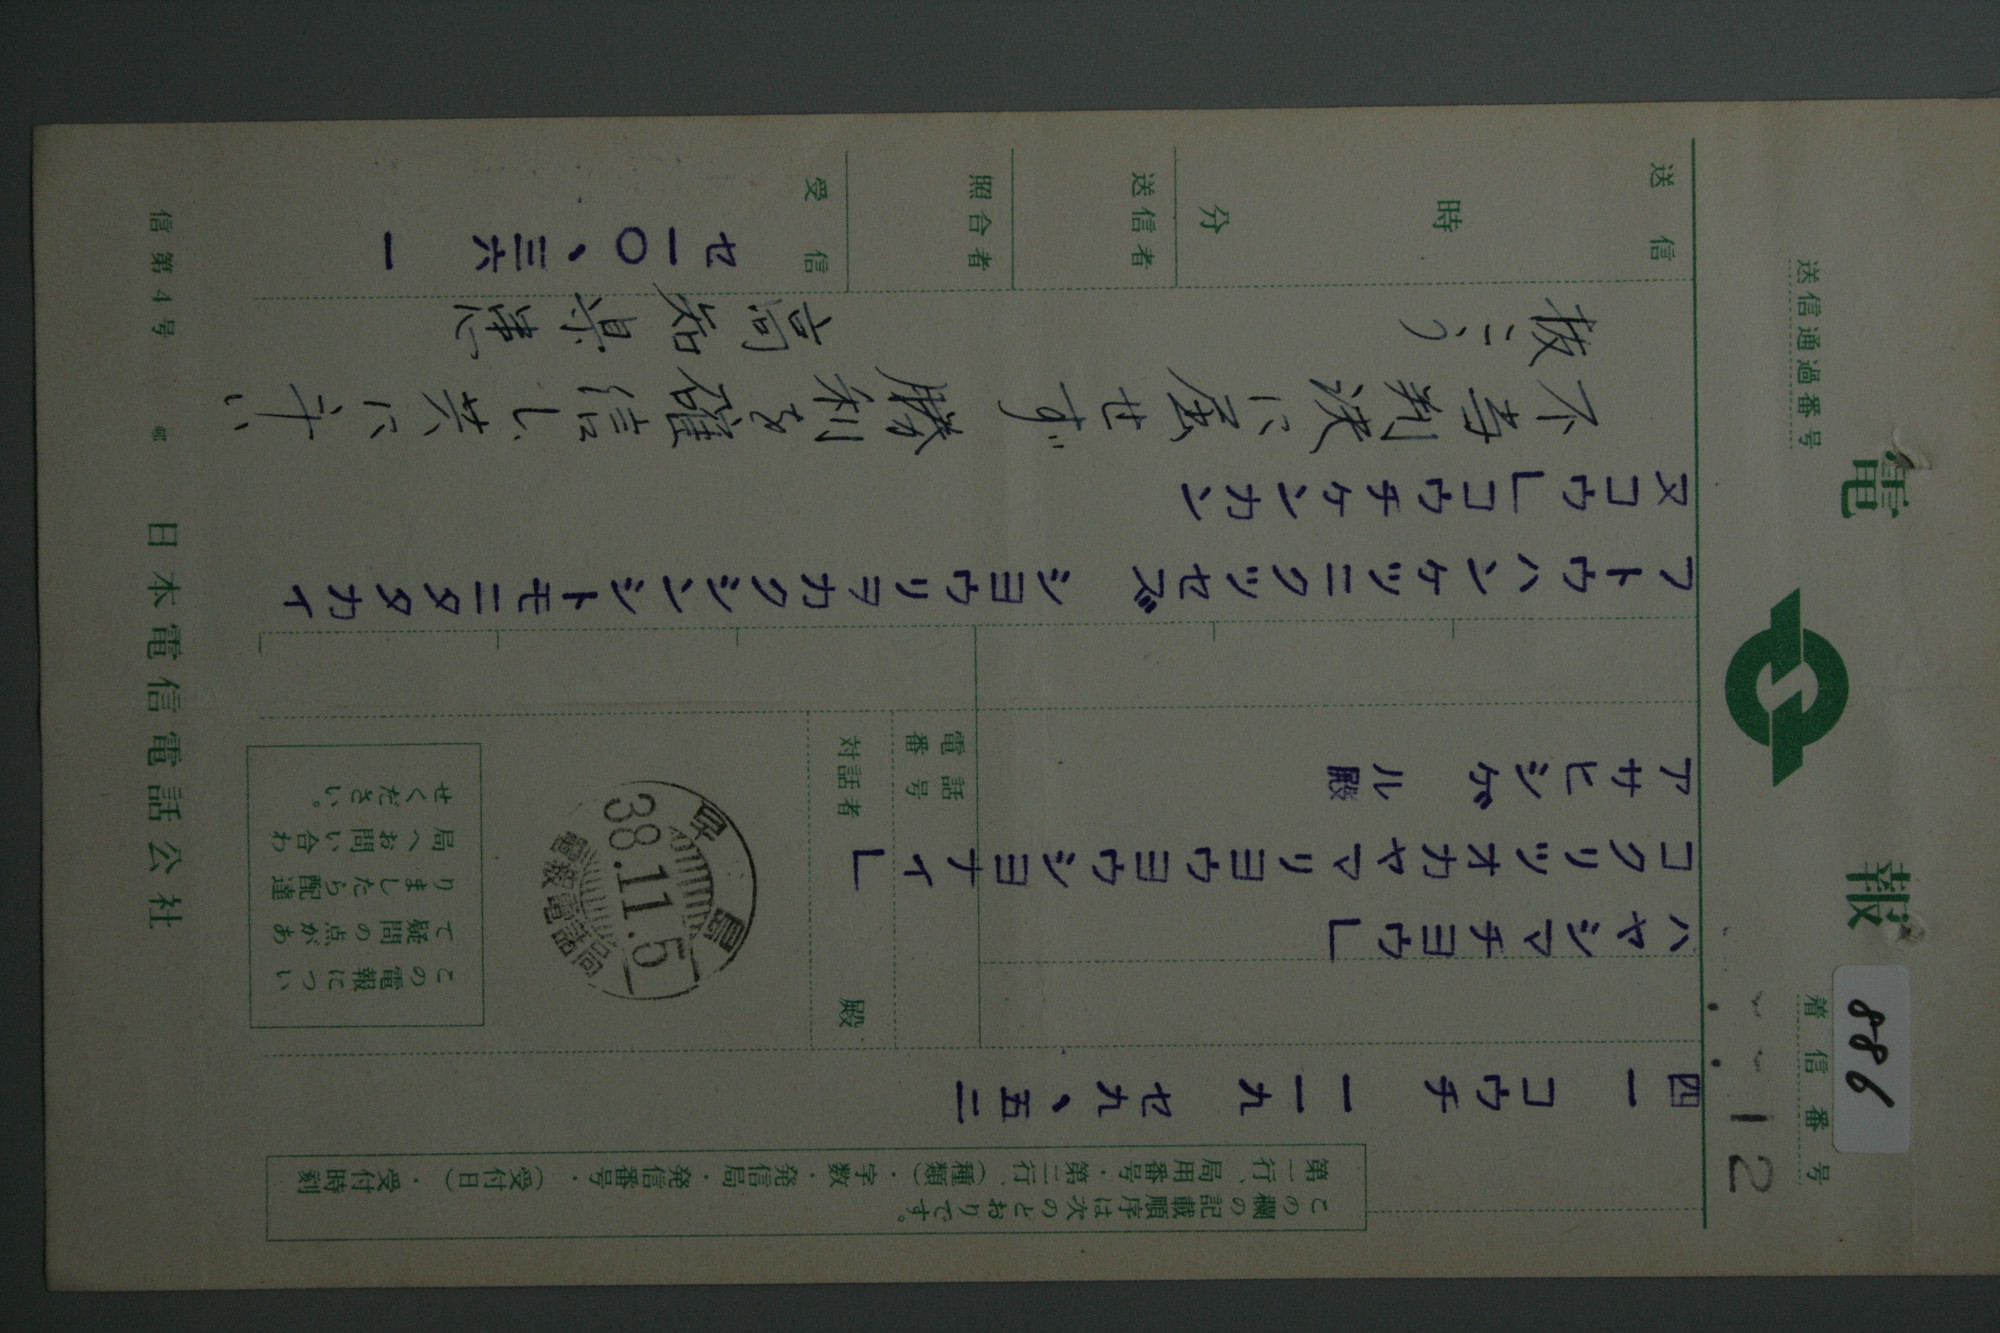 電報
送信通過番号
着信番号
12
886
この欄の記載順序は次のとおりです。
第一行、局用番号・第二行、(種類)・字数・発信局・発信番号・(受付日)・受付時刻
四一 コウチ 一一九 セ九、五二
ハヤシマチヨウL
コクリツオカヤマリヨウヨウシヨナイL
アサヒシゲル殿
電話番号
対話者 殿
早島
38.11.5
電報電話局
この電報につい
て疑問の点があ
りましたら配達
局へお問い合わ
せください。
フトウハンケツニクツセズ シヨウリヲカクシンシトモニタタカイ
ヌコウLコウチケンカン
不当判決に屈せず 勝利を確信し、共に斗い
抜こう 高知県患
送信 時 分
送信者
照合者
受信 セ一〇、三六 一
信第4号
日本電信電話公社